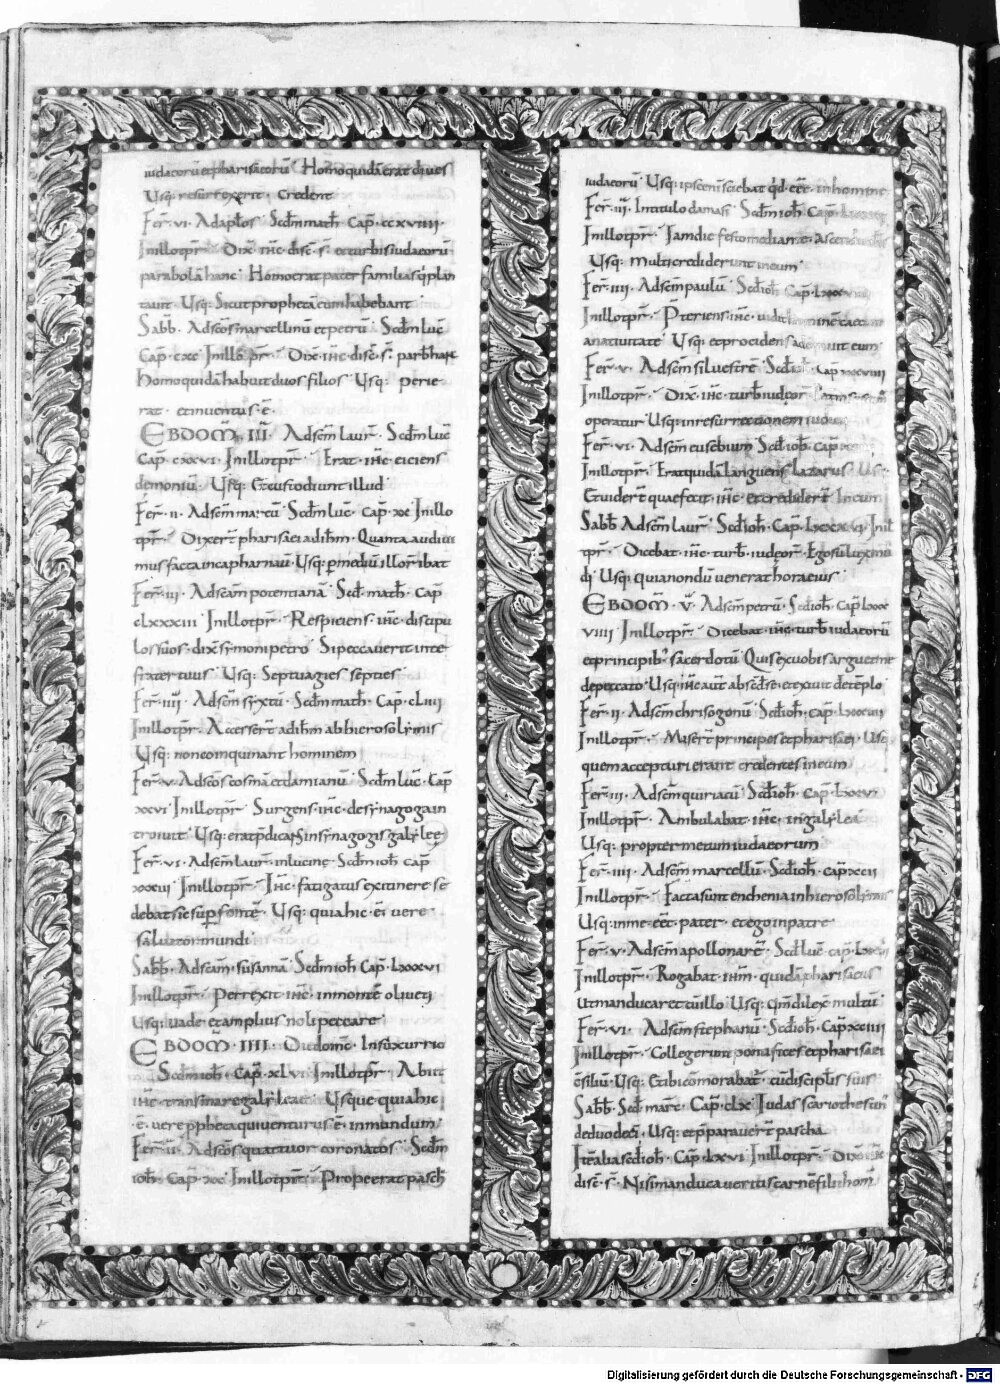 iudaeorū et pharisaeorū Homo quidā erat diues
Usq; resurrexerit credent
Fer̄ vi Ad aptos Scdm math Cap̄ ccxviiii
In illo tpr̄ Dix ihc disc s et turbis iudaeorū
parabolā hanc Homo erat pater familias q plan
tauit Usq; Sicut prophetā eum habebant
Sabb̄ Ad scos marcellinū et petrū Scdm luc
Cap̄ cxc In illo tpr̄ Dix ihc disc s parb hanc
Homo quidā habuit duos filios Usq; perie
rat et inuentus ē
EBDOM III Ad scm laur Scdm luc
Cap̄ cxxvi In illo tpr̄ Erat ihc eiciens
demoniū Usq; Et custodiunt illud
Fer̄ ii Ad scm marcū Scdm luc Cap̄ xx In illo
tpr̄ Dixert pharisaei ad ihm Quanta audiui
mus facta in capharnaū Usq; p mediū illor ibat
Fer̄ iii Ad scam potentianā Scd math Cap̄
clxxxiii In illo tpr̄ Respiciens ihc discipu
los suos dix symoni petro Si peccauerit in te
frater tuus Usq; Septuagies septies
Fer̄ iiii Ad scm syxtū Scdm math Cap̄ cliiii
In illo tpr̄ Accessert ad ihm ab hierosolymis
Usq; non coinquinant hominem
Fer̄ v Ad scos cosmā et damianū Scdm luc Cap̄
xxvi In illo tpr̄ Surgens ihc de synagoga in
troiuit Usq; erat pdicans in synagogis galyleę
Fer̄ vi Ad scm laur in lucine Scdm ioh cap̄
xxxiii In illo tpr̄ Ihc fatigatus ex itinere se
debat sic sup fontē Usq; quia hic ē uere
saluator mundi
Sabb̄ Ad scam susannā Scdm ioh Cap̄ lxxxvi
In illo tpr̄ Perrexit ihc in montē oliueti
Usq; uade et amplius noli peccare
EBDOM IIII Die domc In sūxurrio
Scdm ioh Cap̄ xlvi In illo tpr̄ Abiit
ihc trans mare galyleae Usque quia hic
ē uere ppheta qui uenturus ē in mundum
Fer̄ ii Ad scos quattuor coronatos Scdm
ioh Cap̄ xx In illo tpr̄ Prope erat pasch
iudaeorū Usq; ipse enim sciebat qd eēt in homine
Fer̄ iii In titulo damasi Scdm ioh Cap̄
In illo tpr̄ Iam die festo mediante Ascendit ihc
Usq; multi crediderunt in eum
Fer̄ iiii Ad scm paulū Scd ioh Cap̄
In illo tpr̄ Pteriens ihc uidit hominē caecum
a natiuitate Usq; et procidens adorauit eum
Fer̄ v Ad scm siluestrē Scd ioh Cap̄ xxxviiii
In illo tpr̄ Dix ihc turb iudeor Pater ms
operatur Usq; in resurrectionem iudicii
Fer̄ vi Ad scm eusebium Scd ioh Cap̄
In illo tpr̄ Erat quidā languens lazarus Usq;
Et uidert quae fecit ihc et credidert in eum
Sabb̄ Ad scm laur Scd ioh Cap̄ lxxxvi In illo
tpr̄ Dicebat ihc turb iudeor Ego sū lux mū
di Usq; quia nondū uenerat hora eius
EBDOM V Ad scm petrū Scd ioh Cap̄ lxxx
viiii In illo tpr̄ Dicebat ihc turb iudaeorū
et principib sacerdotū Quis ex uobis arguet me
de peccato Usq; ihc aut abscdse et exiuit de tēplo
Fer̄ ii Ad scm chrisogonū Scd ioh Cap̄
In illo tpr̄ Misert principes et pharisaei Usq;
quem accepturi erant credentes in eum
Fer̄ iii Ad scm quiriacū Scd ioh Cap̄ lxxvi
In illo tpr̄ Ambulabat ihc in galyleā
Usq; propter metum iudaeorum
Fer̄ iiii Ad scm marcellū Scd ioh Cap̄ xcii
In illo tpr̄ Facta sunt enchenia in hierosolymis
Usq; in me eēt pater et ego in patre
Fer̄ v Ad scm apollonarē Scd luc cap̄
In illo tpr̄ Rogabat ihm quidā pharisaeus
ut manducaret cū illo Usq; qm dilex multū
Fer̄ vi Ad scm stephanū Scd ioh Cap̄ xciiii
In illo tpr̄ Collegerunt pontifices et pharisaei
csiliū Usq; Et ibi cōmorabat cū disciplis suis
Sabb̄ Scd marc Cap̄ clx Iudas scariothes un
de duodec Usq; et pparauert pascha
It alia scd ioh Cap̄ lxvi In illo tpr̄ Dix ihc
disc s Nisi manducaueritis carnē filii hom
Digitalisierung gefördert durch die Deutsche Forschungsgemeinschaft - DFG